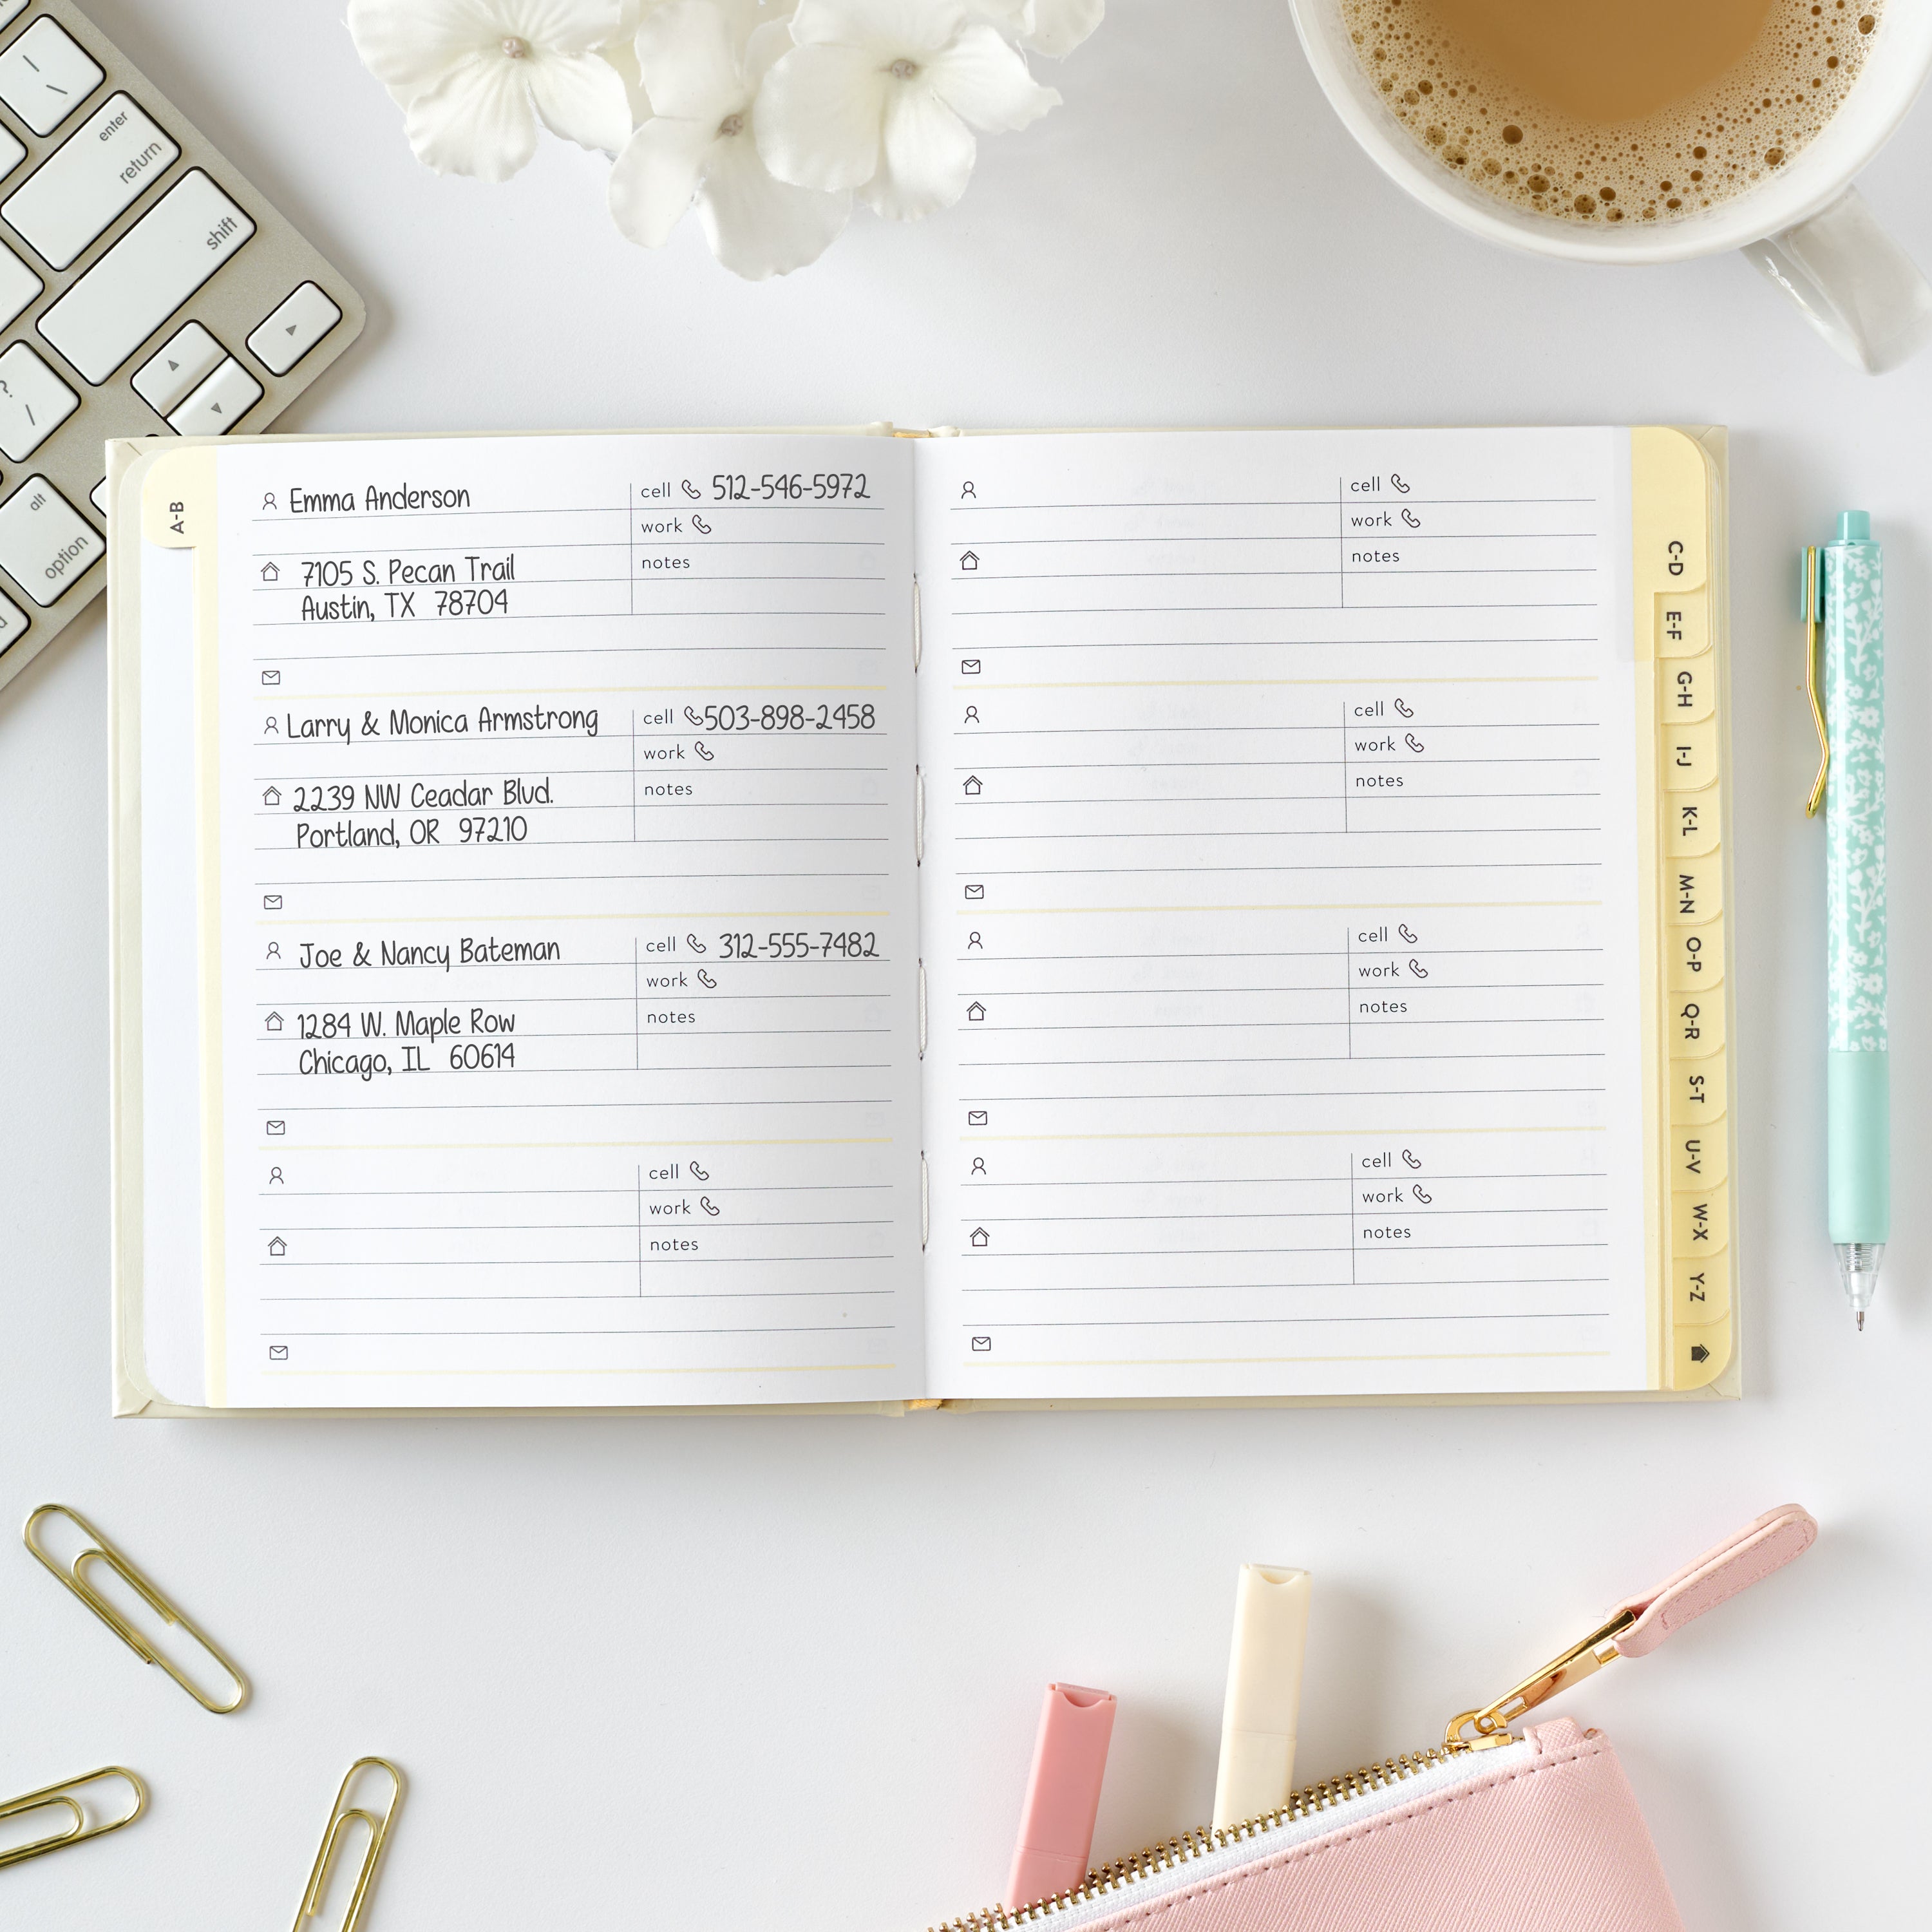 enter
return
shift
?
/
alt
option
A-B
Emma Anderson
cell 512-546-5972
work
7105 S. Pecan Trail
notes
Austin, TX 78704
Larry & Monica Armstrong
cell 503-898-2458
work
2239 NW Ceadar Blvd.
notes
Portland, OR 97210
Joe & Nancy Bateman
cell 312-555-7482
work
1284 W. Maple Row
notes
Chicago, IL 60614
cell
work
notes
cell
work
notes
cell
work
notes
cell
work
notes
cell
work
notes
C-D
E-F
G-H
I-J
K-L
M-N
O-P
Q-R
S-T
U-V
W-X
Y-Z